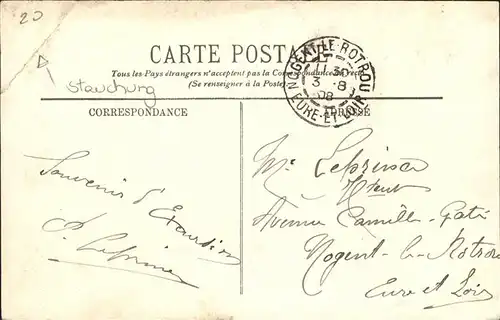 20
CARTE POSTALE
Tous les Pays étrangers n'acceptent pas la Correspondance au recto
(Se renseigner à la Poste)
Stauchung
NOGENT-LE-ROTROU
11 30
3 - 8
08
EURE-ET-LOIR
CORRESPONDANCE
ADRESSE
Souvenir d'Excursion
Leprince
Mr Leprince
Avenue Camille-Gaté
Nogent-le-Rotrou
Eure et Loir